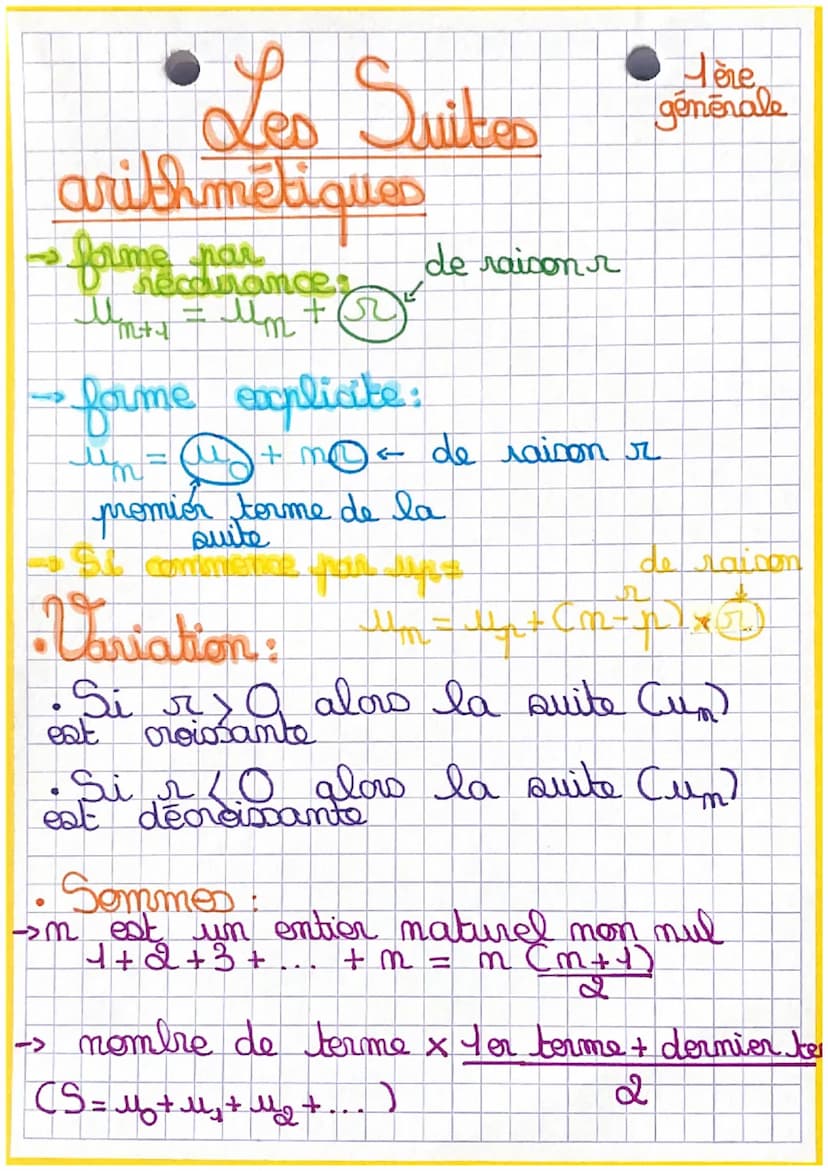 Les Suites
1ère
générale
arithmétiques
→ forme par
récurrence:
de raison r
u_{n+1} = u_n + r
→ forme explicite:
u_n = u_0 + nr ← de raison r
premier terme de la
suite
→ Si commence par u_p =
de raison
r
u_n = u_p + (n-p) × r)
• Variation:
• Si r > 0 alors la suite (u_n)
est croissante
• Si r < 0 alors la suite (u_n)
est décroissante
• Sommes:
→ n est un entier naturel non nul
1+2+3+... + n = n (n+1)
2
→ nombre de terme × 1er terme + dernier te
2
(S = u_0 + u_1 + u_2 + ...)